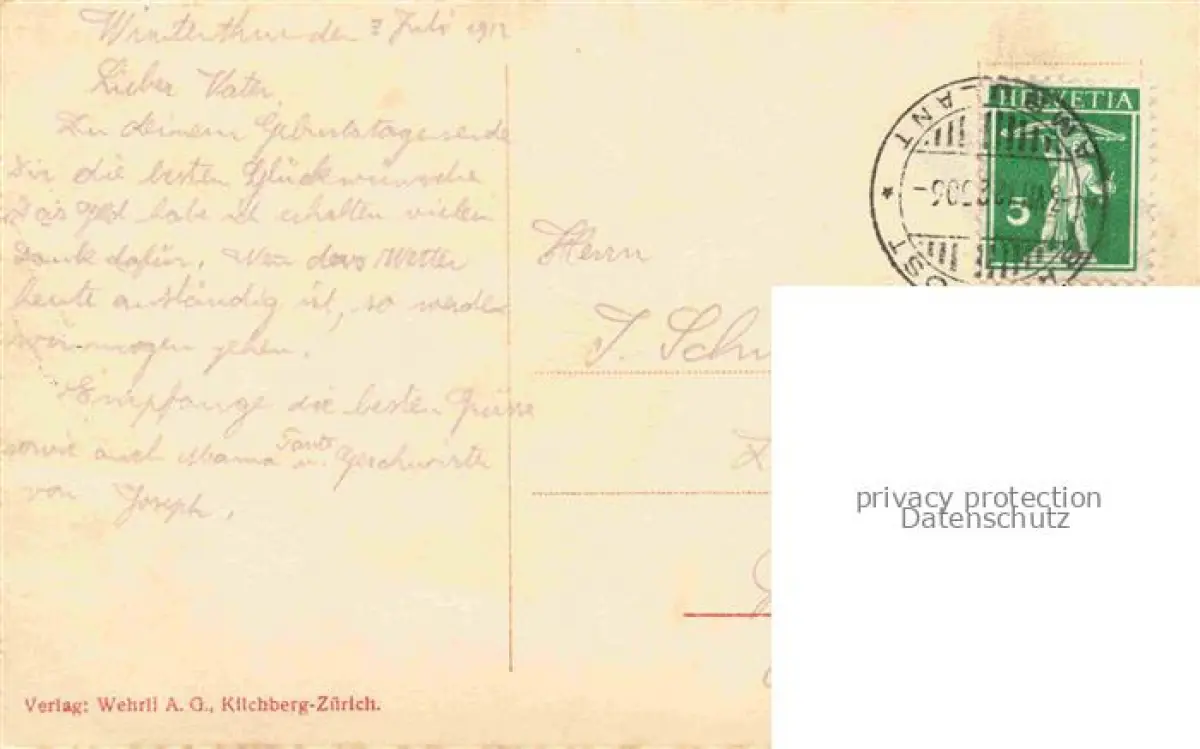 Winterthur den 7 Juli 1912
Lieber Vater.
Zu deinem Geburtstage sende
Dir die besten Glückwünsche
Das Geld habe ich erhalten vielen
Dank dafür. Wen das Wetter
heute anständig ist, so werden
wir morgen gehen.
Empfange die besten Grüsse
sowie auch Mama Tante u. Geschwister
von Joseph.
Verlag: Wehrli A. G., Kilchberg-Zürich.
HELVETIA
5
AMBULANT
Herrn
J. Sch
privacy protection
Datenschutz